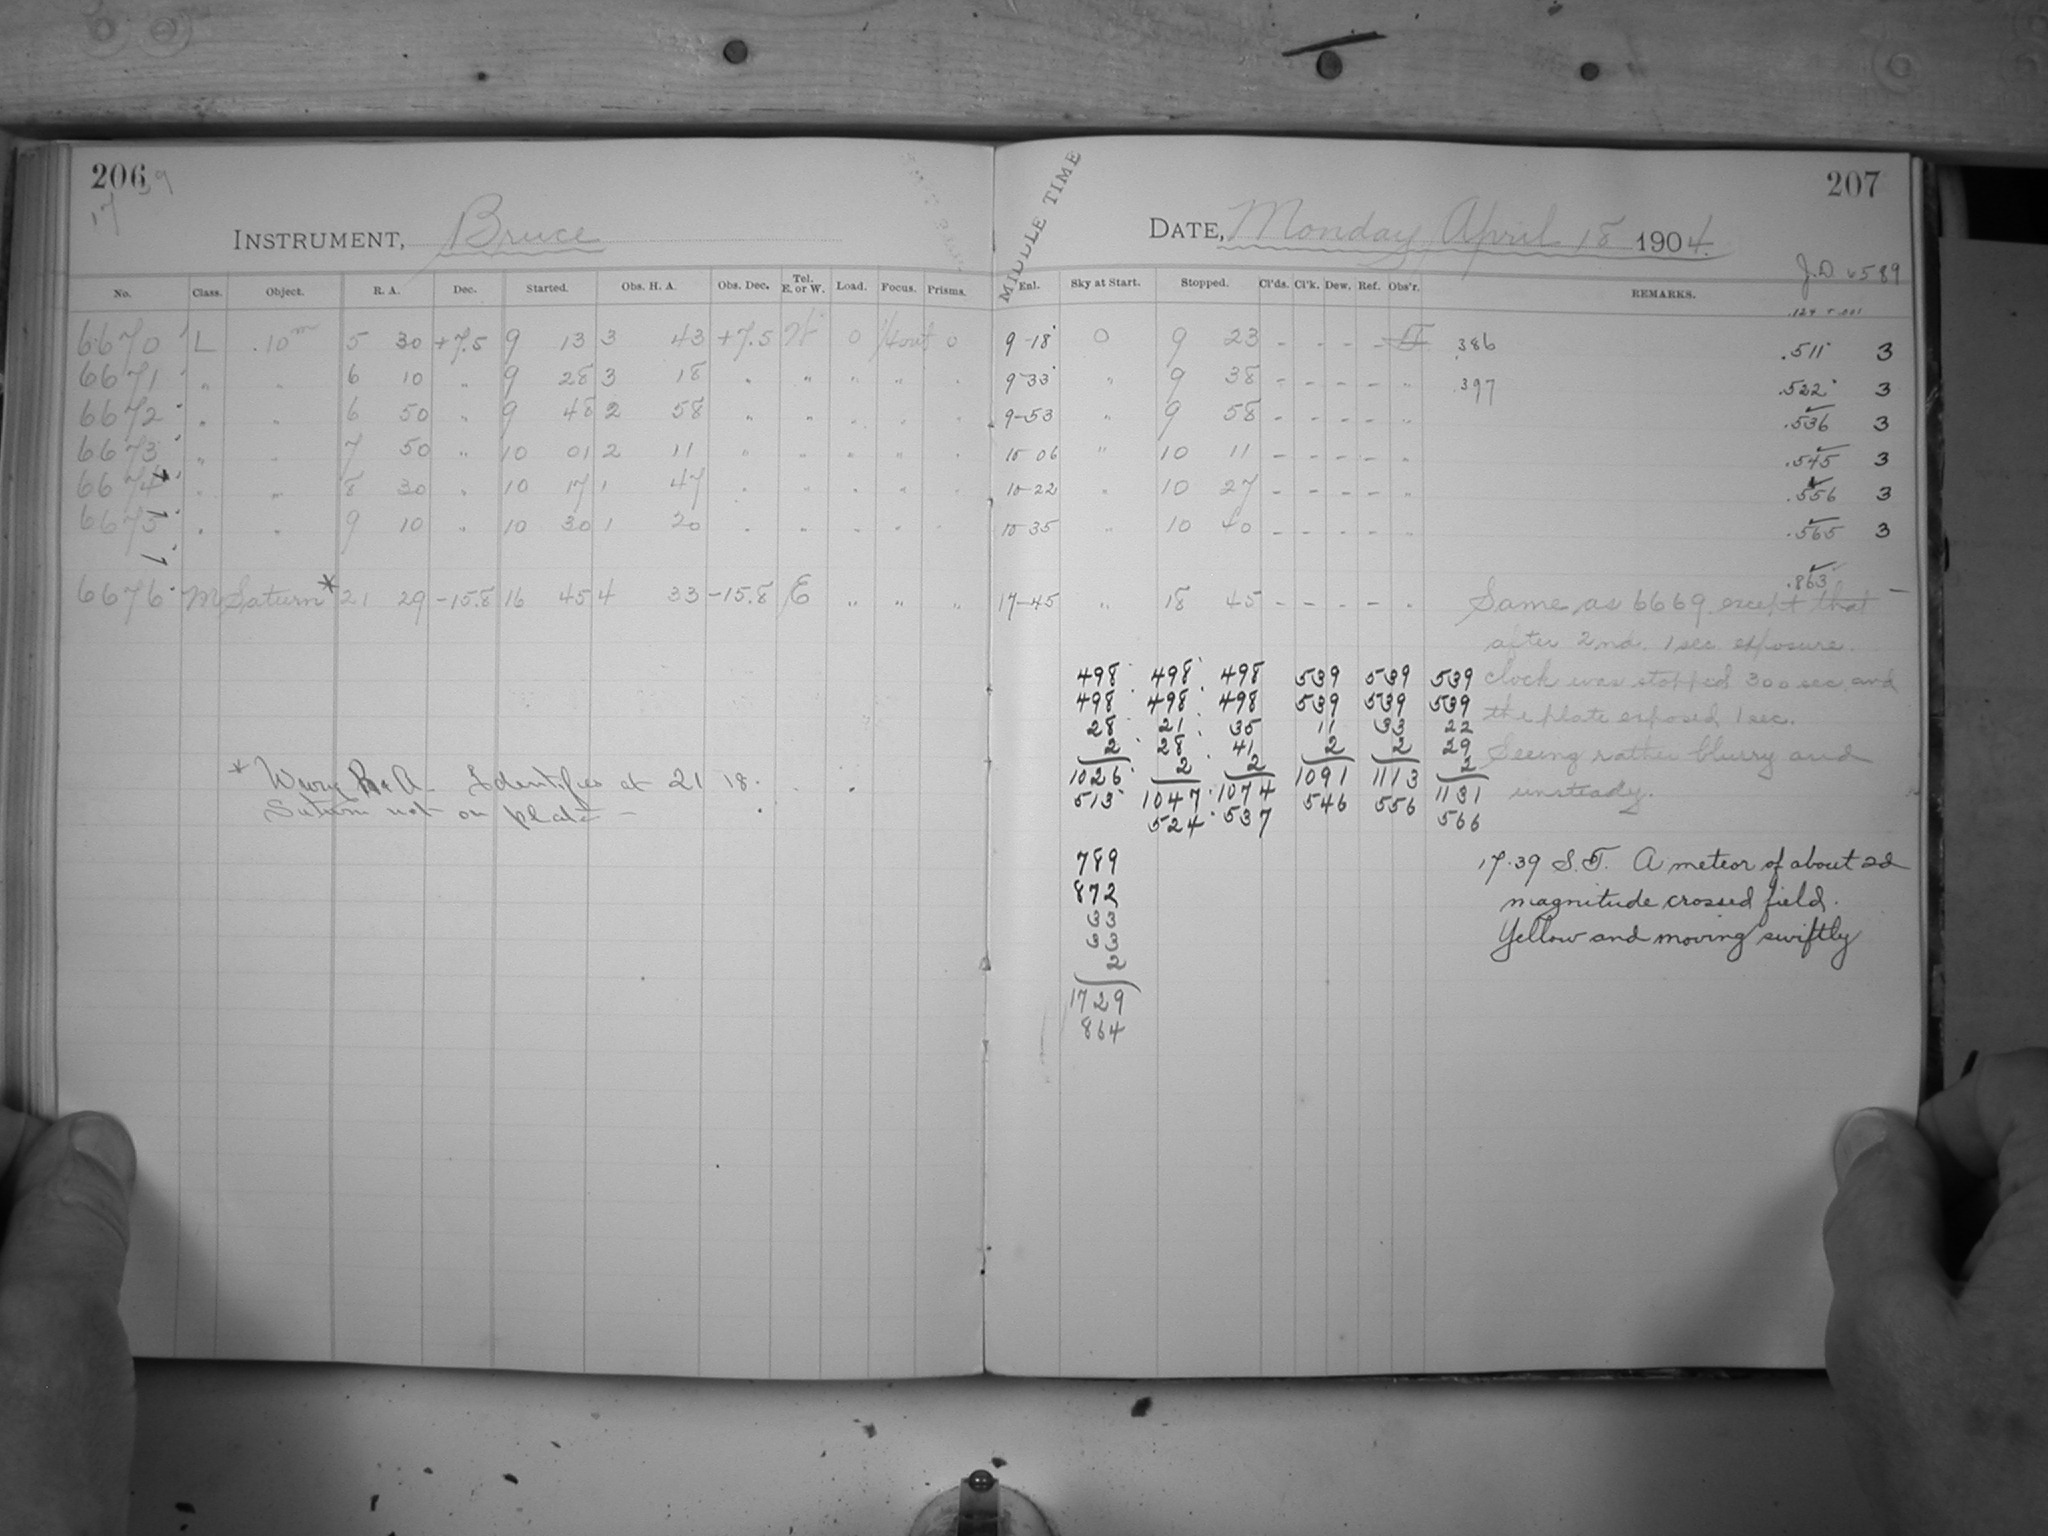 206
17 39
INSTRUMENT, Bruce
No. Class. Object. R. A. Dec. Started. Obs. H. A. Obs. Dec. Tel. E. or W. Load. Focus. Prisms.
6670 L .10m 5 30 +7.5 9 13 3 43 +7.5 W 0 out 0
6671 " " 6 10 " 9 28 3 18 " " " " "
6672 " " 6 50 " 9 48 2 58 " " " " "
6673 " " 7 50 " 10 01 2 11 " " " " "
6674 " " 8 30 " 10 17 1 47 " " " " "
6675 " " 9 10 " 10 30 1 20 " " " " "
6676 M Saturn* 21 29 -15.8 16 45 4 33 -15.8 E " " "
* Wrong R.A. Identifies at 21 18.
Saturn not on plate -
207
MIDDLE TIME
DATE, Monday April 18 1904.
J.D. 6589
Enl. Sky at Start. Stopped. Cl'ds. Cl'k. Dew. Ref. Obs'r. REMARKS.
9-18 0 9 23 - - - - .386 .511 3
9-33 " 9 38 - - - - " .397 .522 3
9-53 " 9 58 - - - - " .536 3
10 06 " 10 11 - - - - " .545 3
10-22 " 10 27 - - - - " .556 3
10-35 " 10 40 - - - - " .565 3
.863
17-45 " 18 45 - - - - " Same as 6669 except that
after 2nd. 1 sec exposure
clock was stopped 300 sec. and
the plate exposed 1 sec.
Seeing rather blurry and
unsteady.
498 498 498 539 539 539
498 498 498 539 539 539
28 21 35 11 33 22
2 28 41 2 2 29
2 2 2
1026 1047 1074 1091 1113 1131
513 524 537 546 556 566
789
872
33
33
2
1729
864
17.39 S.T. A meteor of about 2d
magnitude crossed field.
Yellow and moving swiftly